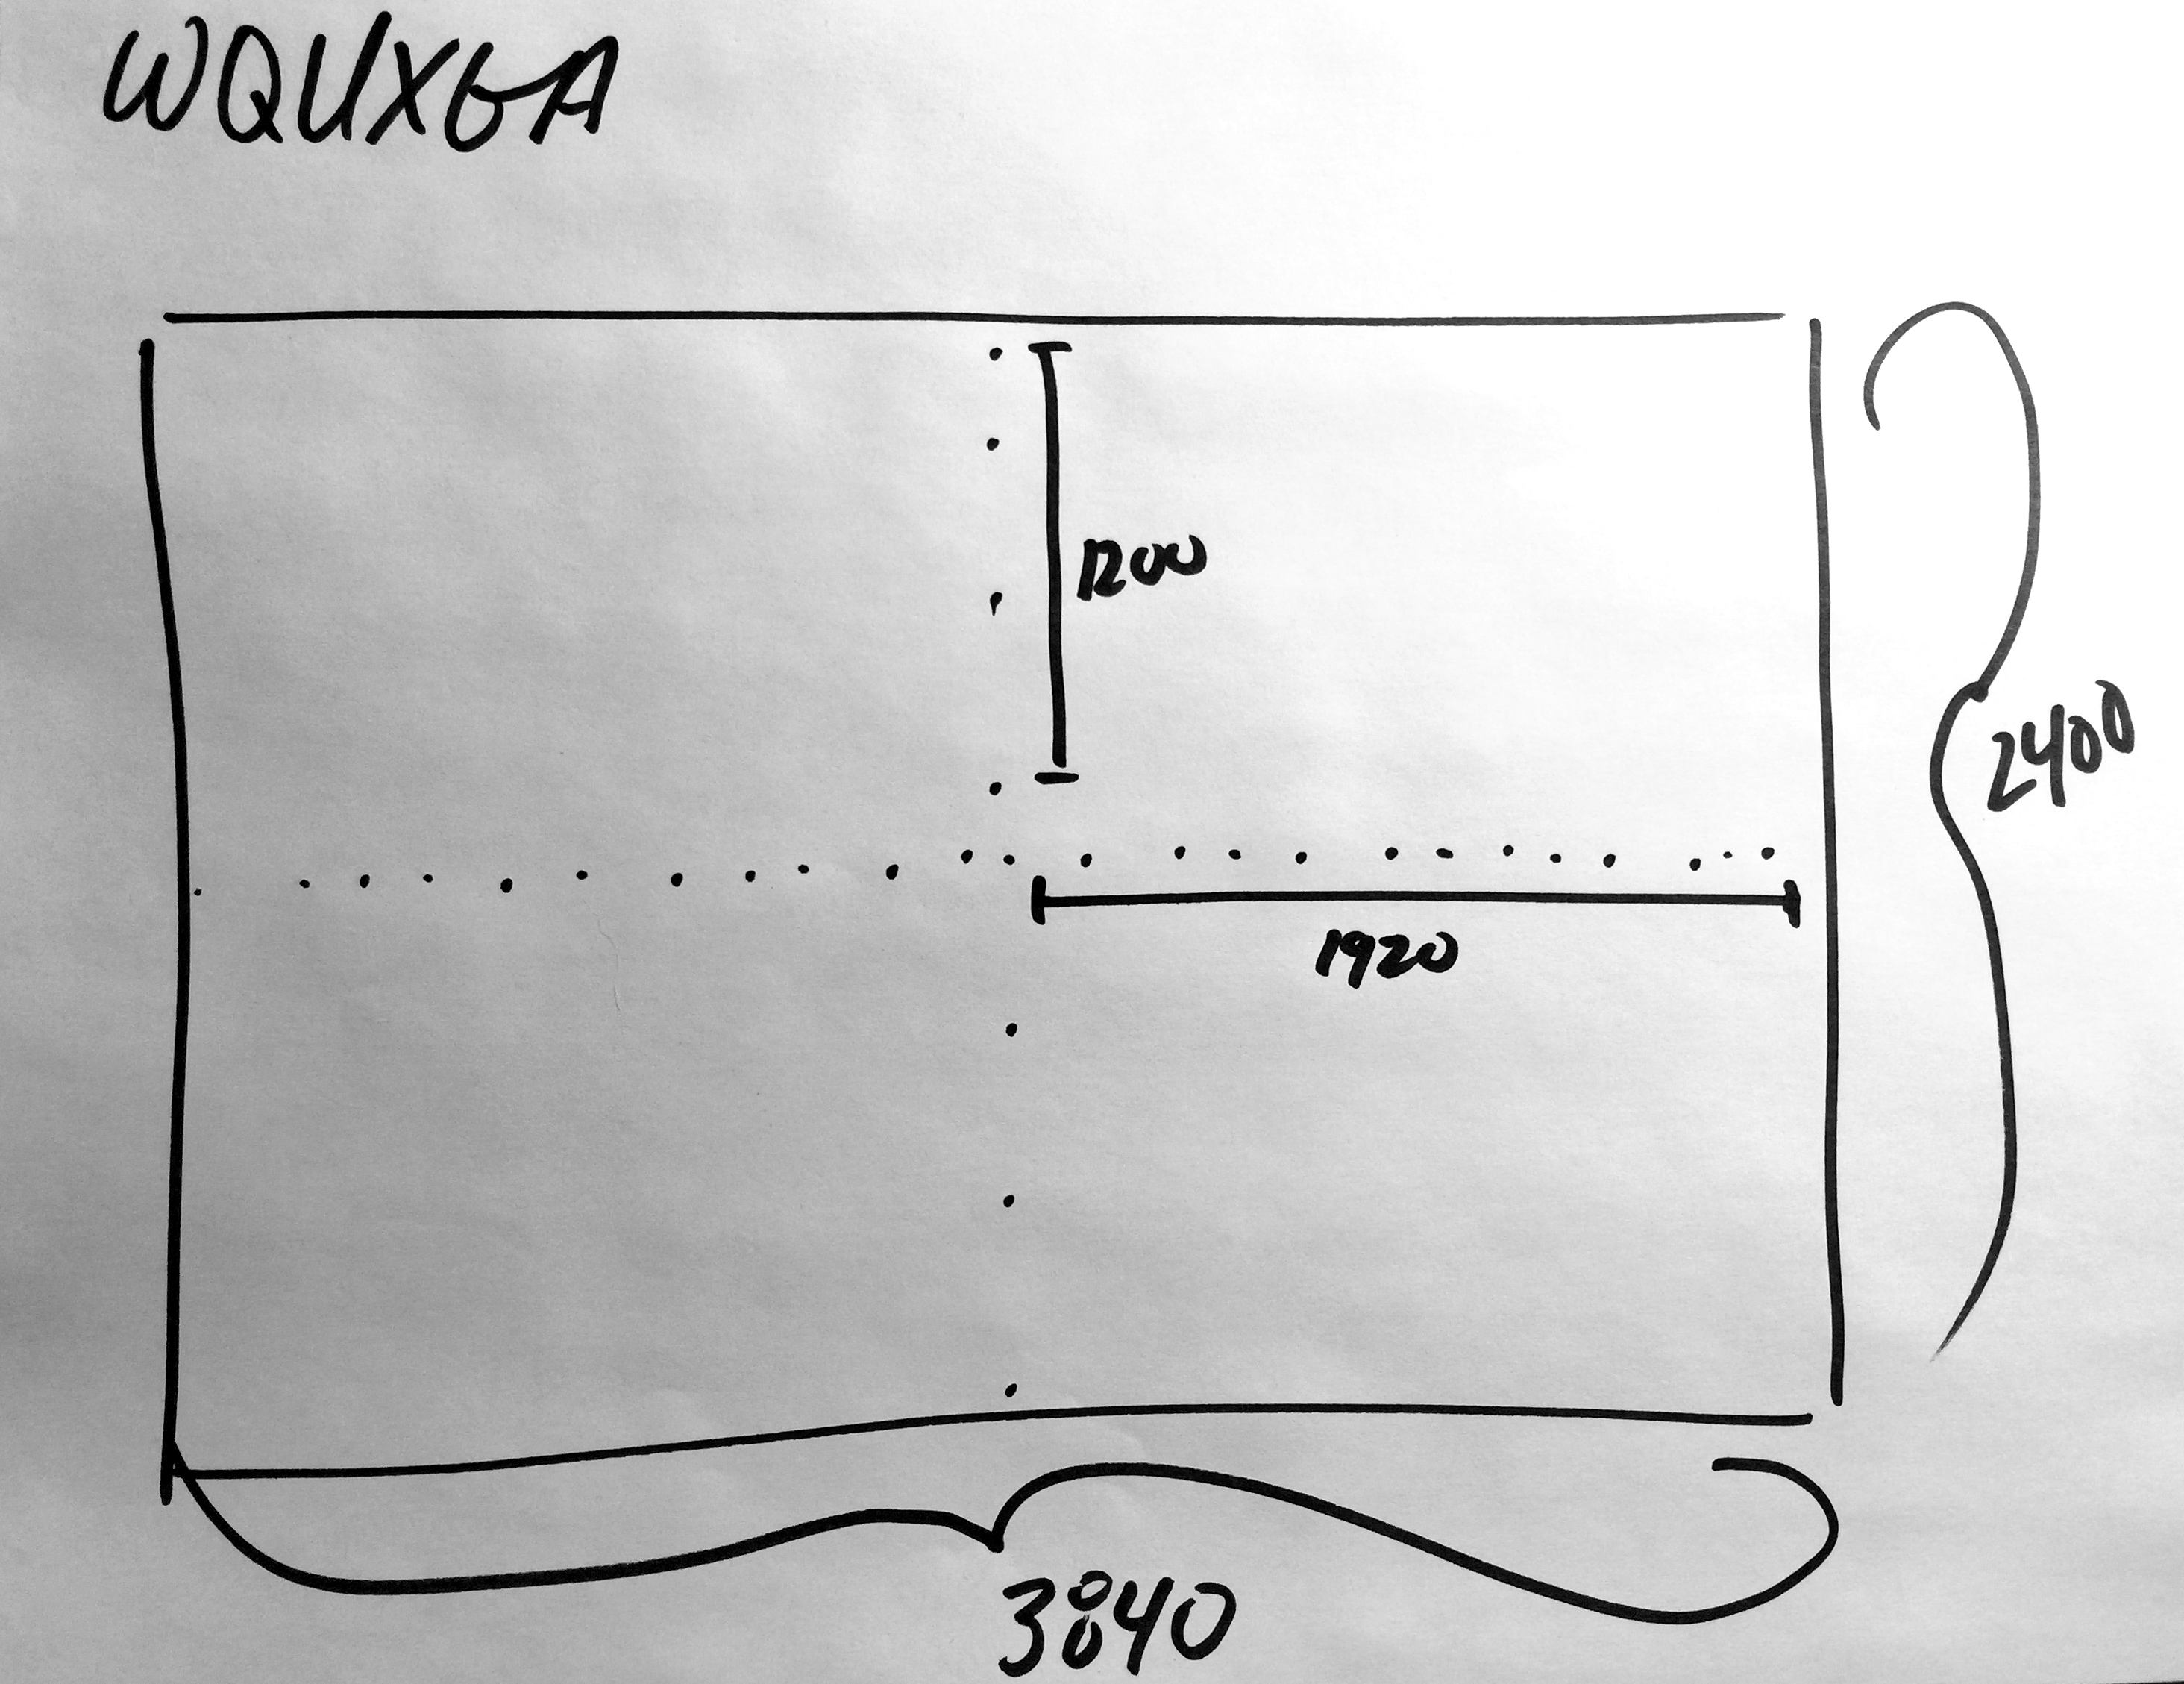 WQUXGA
1200
2400
1920
3840